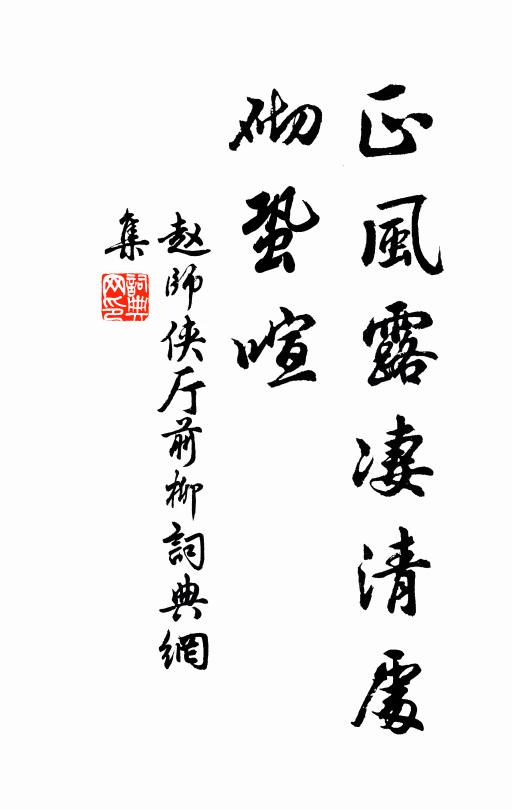 正風露凄清處
砌蛩喧
赵師侠厅前柳詞典網
集
詞典
网印